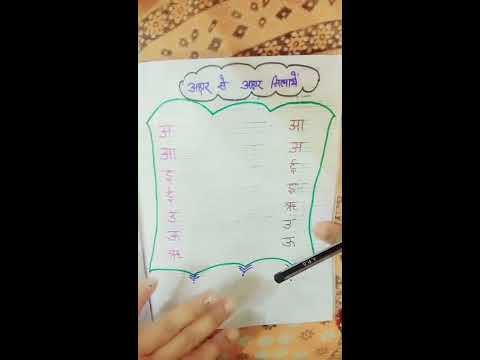 अक्षर से अक्षर मिलायें
अ आ
आ अ
इ ई
ई इ
उ ऋ
ऊ उ
ऋ ऊ